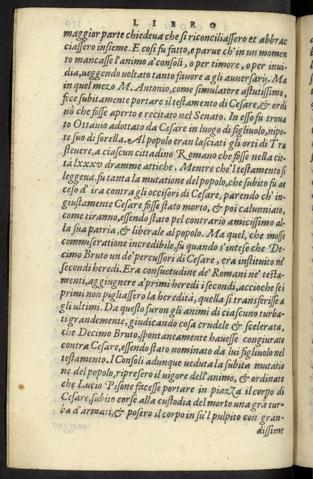 LIBRO
maggior parte chiedeua che si riconciliassero et abbrac
ciassero insieme. E cosi fu fatto, e parue ch'in un momen
to mancasse l'animo a' consoli, o per timore, o per inui-
dia, ueggendo uoltato tanto fauore a gli auuersarij. Ma
in quel mezo M. Antonio, come simulatore astutissimo,
fece subitamente portare il testamento di Cesare, & ordi
nò che fosse aperto e recitato nel Senato. In esso fu troua
to Ottauio adottato da Cesare in luogo di figliuolo, nipo-
te suo di sorella. Al popolo eran lasciati gli orti di Tra
steuere, a ciascun cittadino Romano che fosse nella cit-
tà lxxxv dramme attiche. Mentre che'l testamento si
leggeua, fu tanta la mutatione del popolo, che subito fu ac
ceso d'ira contra gli occisori di Cesare, parendo ch'in-
giustamente Cesare fosse stato morto, & poi calunniato,
come tiranno, essendo stato pel contrario amicissimo al-
la sua patria, & liberale al popolo. Ma quel, che mosse
commiseratione incredibile, fu quando s'intese che De-
cimo Bruto un de' percussori di Cesare, era instituito ne'
secondi heredi. Era consuetudine de' Romani ne' testa-
menti, aggiugnere a' primi heredi i secondi, accioche se i
primi non pigliassero la heredità, quella si transferisse a
gli ultimi. Da questo furon gli animi di ciascuno turba-
ti grandemente, giudicando cosa crudele & scelerata,
che Decimo Bruto, spontaneamente hauesse congiurato
contra Cesare, essendo stato nominato da lui figliuolo nel
testamento. I Consoli adunque ueduta la subita mutatio
ne del popolo, ripresero il uigore dell'animo, & ordinato
che Lucio Pisone facesse portare in piazza il corpo di
Cesare, subito corse alla custodia del morto una gra tur-
ba d'armati, & posero il corpo in su'l pulpito con gran-
dissime